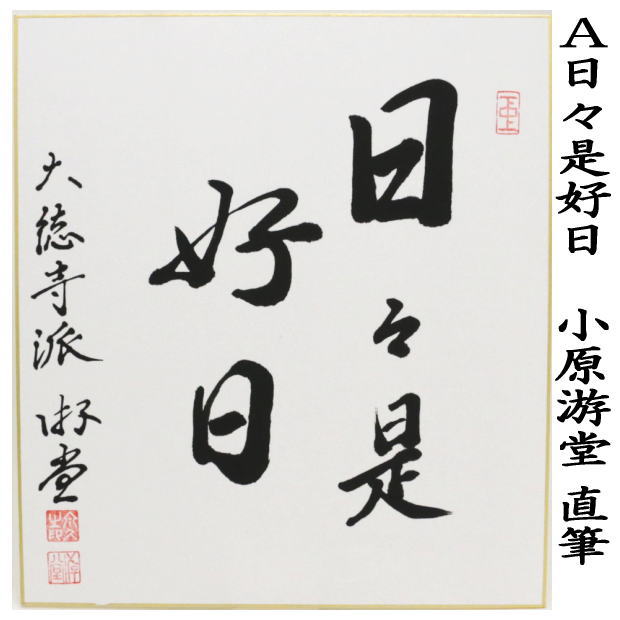 A日々是好日 小原游堂 直筆
日々是
好日
大徳寺派 游堂